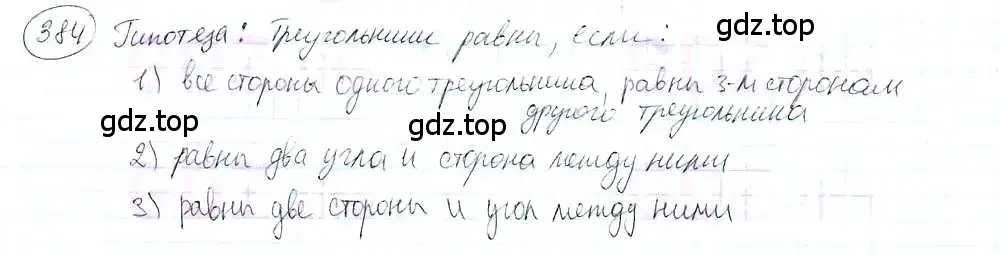 384 Гипотеза: Треугольники равны, если:
gdz.top
1) все стороны одного треугольника, равны 3-м сторонам
другого треугольника
gdz.top
gdz.top
2) равны два угла и сторона между ними
3) равны две стороны и угол между ними
gdz.top
gdz.top